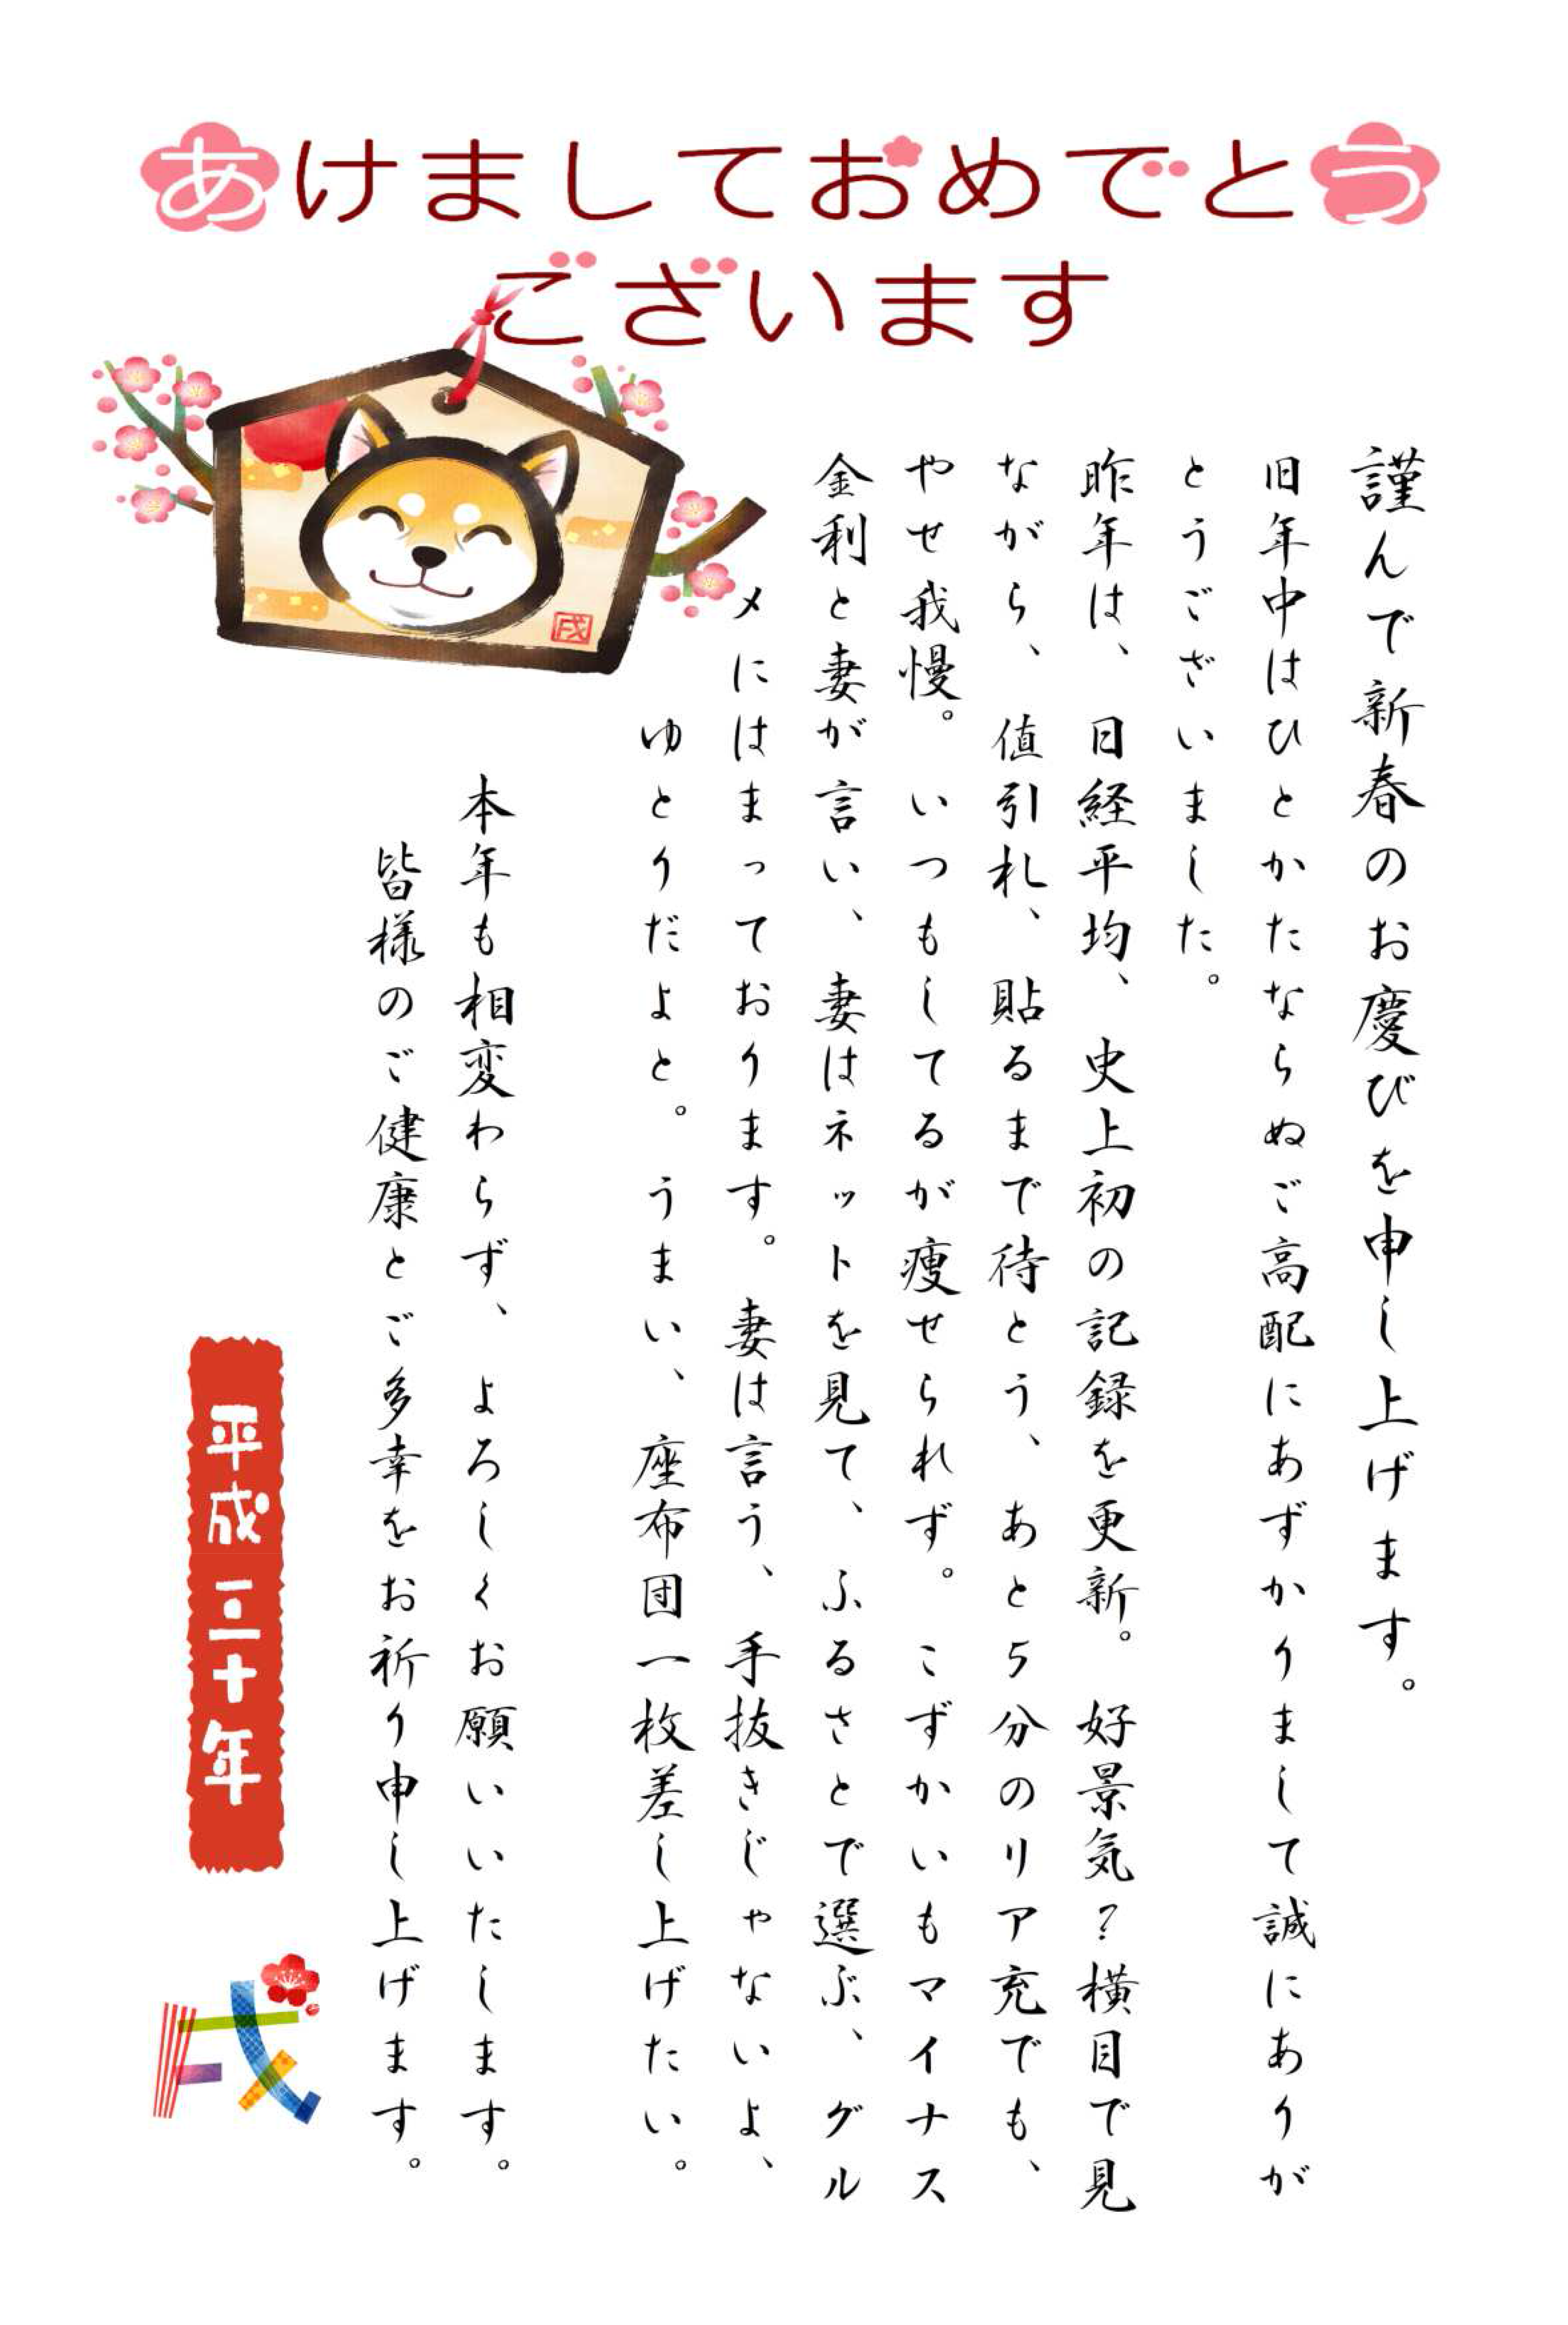 あけましておめでとう
ございます
戌
謹んで新春のお慶びを申し上げます。
旧年中はひとかたならぬご高配にあずかりまして誠にありが
とうございました。
昨年は、日経平均、史上初の記録を更新。好景気?横目で見
ながら、値引札、貼るまで待とう、あと5分のリア充でも、
やせ我慢。いつもしてるが痩せられず。こずかいもマイナス
金利と妻が言い、妻はネットを見て、ふるさとで選ぶ、グル
メにはまっております。妻は言う、手抜きじゃないよ、
ゆとりだよと。うまい、座布団一枚差し上げたい。
本年も相変わらず、よろしくお願いいたします。
皆様のご健康とご多幸をお祈り申し上げます。
平成三十年
戌